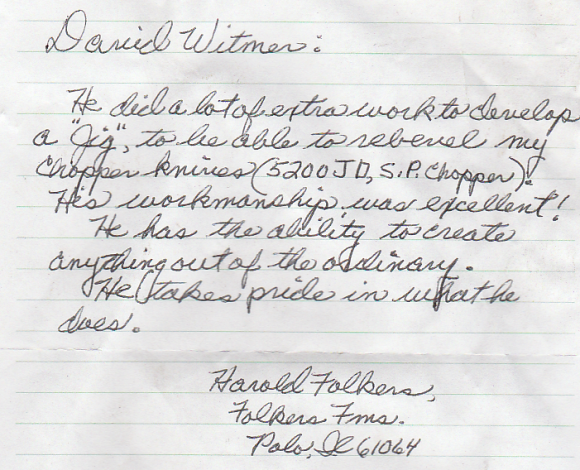 David Witmer:
He did a lot of extra work to develop
a "Jig", to be able to rebevel my
Chopper knives (5200 JD, S.P. Chopper).
His workmanship was excellent!
He has the ability to create
anything out of the ordinary.
He takes pride in what he
does.
Harold Folkers,
Folkers Fms.
Polo, IL 61064